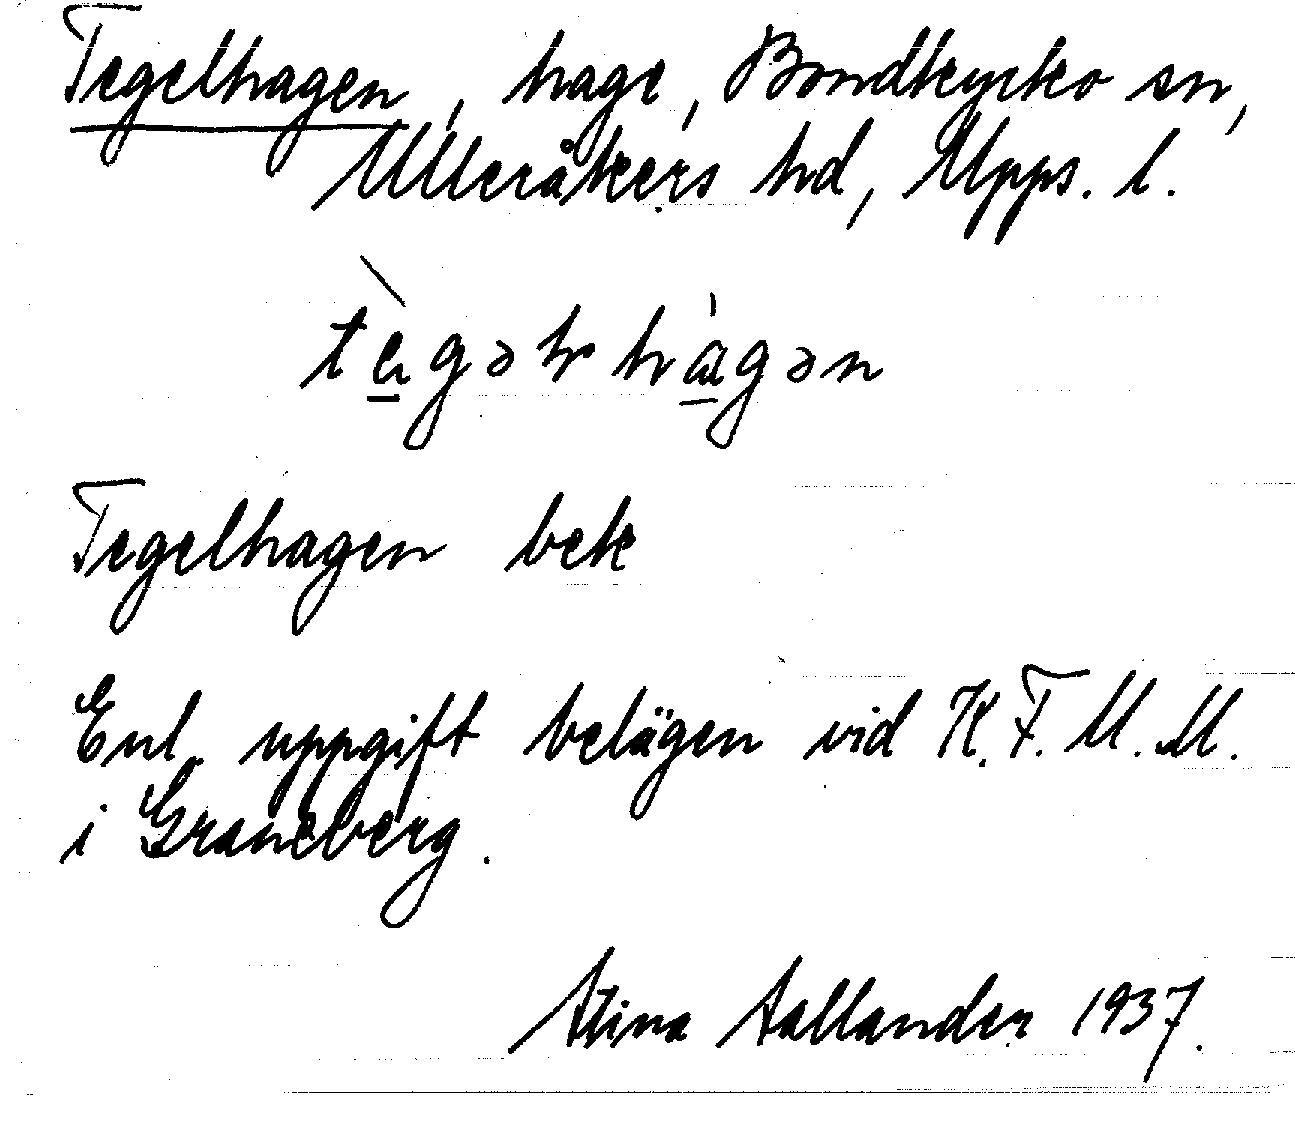 Tegelhagen, hage, Bondkyrko sn,
Ulleråkers hd, Upps. l.
Tegelhagen bek
Enl. uppgift belägen vid K.F.U.M.
i Graneberg.
Stina Hallander 1937.